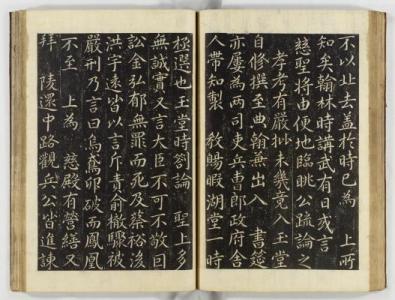 不以此去益於時已為 上所
知矣翰林時講武有日或言
慈聖將由便地臨眺公疏論之
孝考有嚴批未幾竟入玉堂
自修撰至典翰無出入 書筵
亦屢為兩司吏兵曹郎政府舍
人帶知製 教賜暇湖堂一時
極選也玉堂時劄論 聖上多
無誠實又言大臣不可不敬回
訟金弘郁無罪而死及蔡裕後
洪字遠皆以言斥責俞㯙驟被
嚴刑乃言曰烏鳶卵破而鳳凰
不至 上為 慈殿有營繕又
拜 陵還中路觀兵公皆進諫